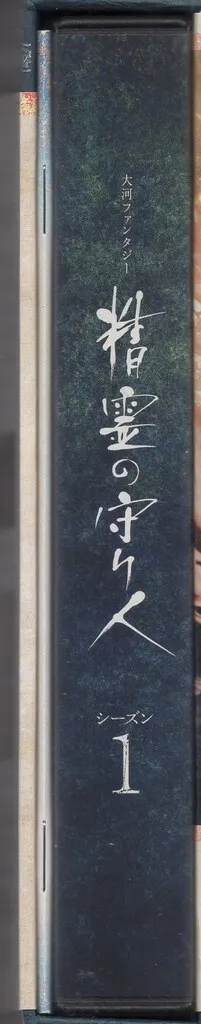 大河ファンタジー
精霊の守り人
シーズン
1